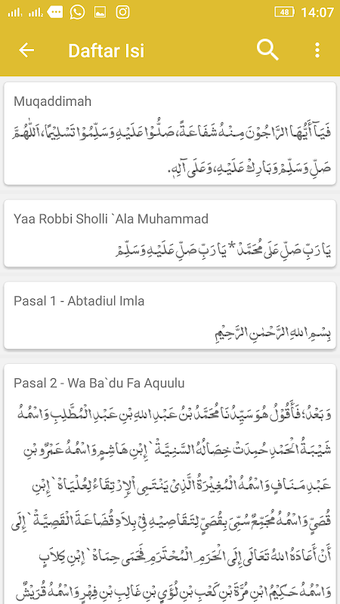 48 14:07
Daftar Isi
Muqaddimah
فَيَآ أَيُّهَا الرَّاجُوْنَ مِنْهُ شَفَاعَةً، صَلُّوْا عَلَيْهِ وَسَلِّمُوْا تَسْلِيْمًا، اَللّٰهُمَّ
صَلِّ وَسَلِّمْ وَبَارِكْ عَلَيْهِ، وَعَلَى آلِهِ.
Yaa Robbi Sholli `Ala Muhammad
يَا رَبِّ صَلِّ عَلَى مُحَمَّدْ * يَا رَبِّ صَلِّ عَلَيْهِ وَسَلِّمْ
Pasal 1 - Abtadiul Imla
بِسْمِ اللهِ الرَّحْمٰنِ الرَّحِيْمِ
Pasal 2 - Wa Ba`du Fa Aquulu
وَبَعْدُ؛ فَأَقُوْلُ هُوَ سَيِّدُنَا مُحَمَّدُ بْنُ عَبْدِ اللهِ بْنِ عَبْدِ الْمُطَّلِبِ وَاسْمُهُ
شَيْبَةُ الْحَمْدِ حُمِدَتْ خِصَالُهُ السَّنِيَّةْ ` إِبْنِ هَاشِمٍ وَاسْمُهُ عَمْرُو بْنِ
عَبْدِ مَنَافٍ وَاسْمُهُ الْمُغِيْرَةُ الَّذِيْ يَنْتَمِى اْلاِرْتِقَاءُ لِعُلْيَاهْ ` إِبْنِ
قُصَيٍّ وَاسْمُهُ مُجَمِّعٌ سُمِّيَ بِقُصَيٍّ لِتَقَاصِيْهِ فِيْ بِلَادِ قُضَاعَةَ الْقَصِيَّةْ ` إِلَى
أَنْ أَعَادَهُ اللهُ تَعَالَى إِلَى الْحَرَمِ الْمُحْتَرَمِ فَحَمَى حِمَاهْ ` إِبْنِ كِلَابٍ
وَاسْمُهُ حَكِيْمُ ابْنِ مُرَّةَ بْنِ كَعْبِ بْنِ لُؤَيِّ بْنِ غَالِبِ بْنِ فِهْرٍ وَاسْمُهُ قُرَيْشٌ